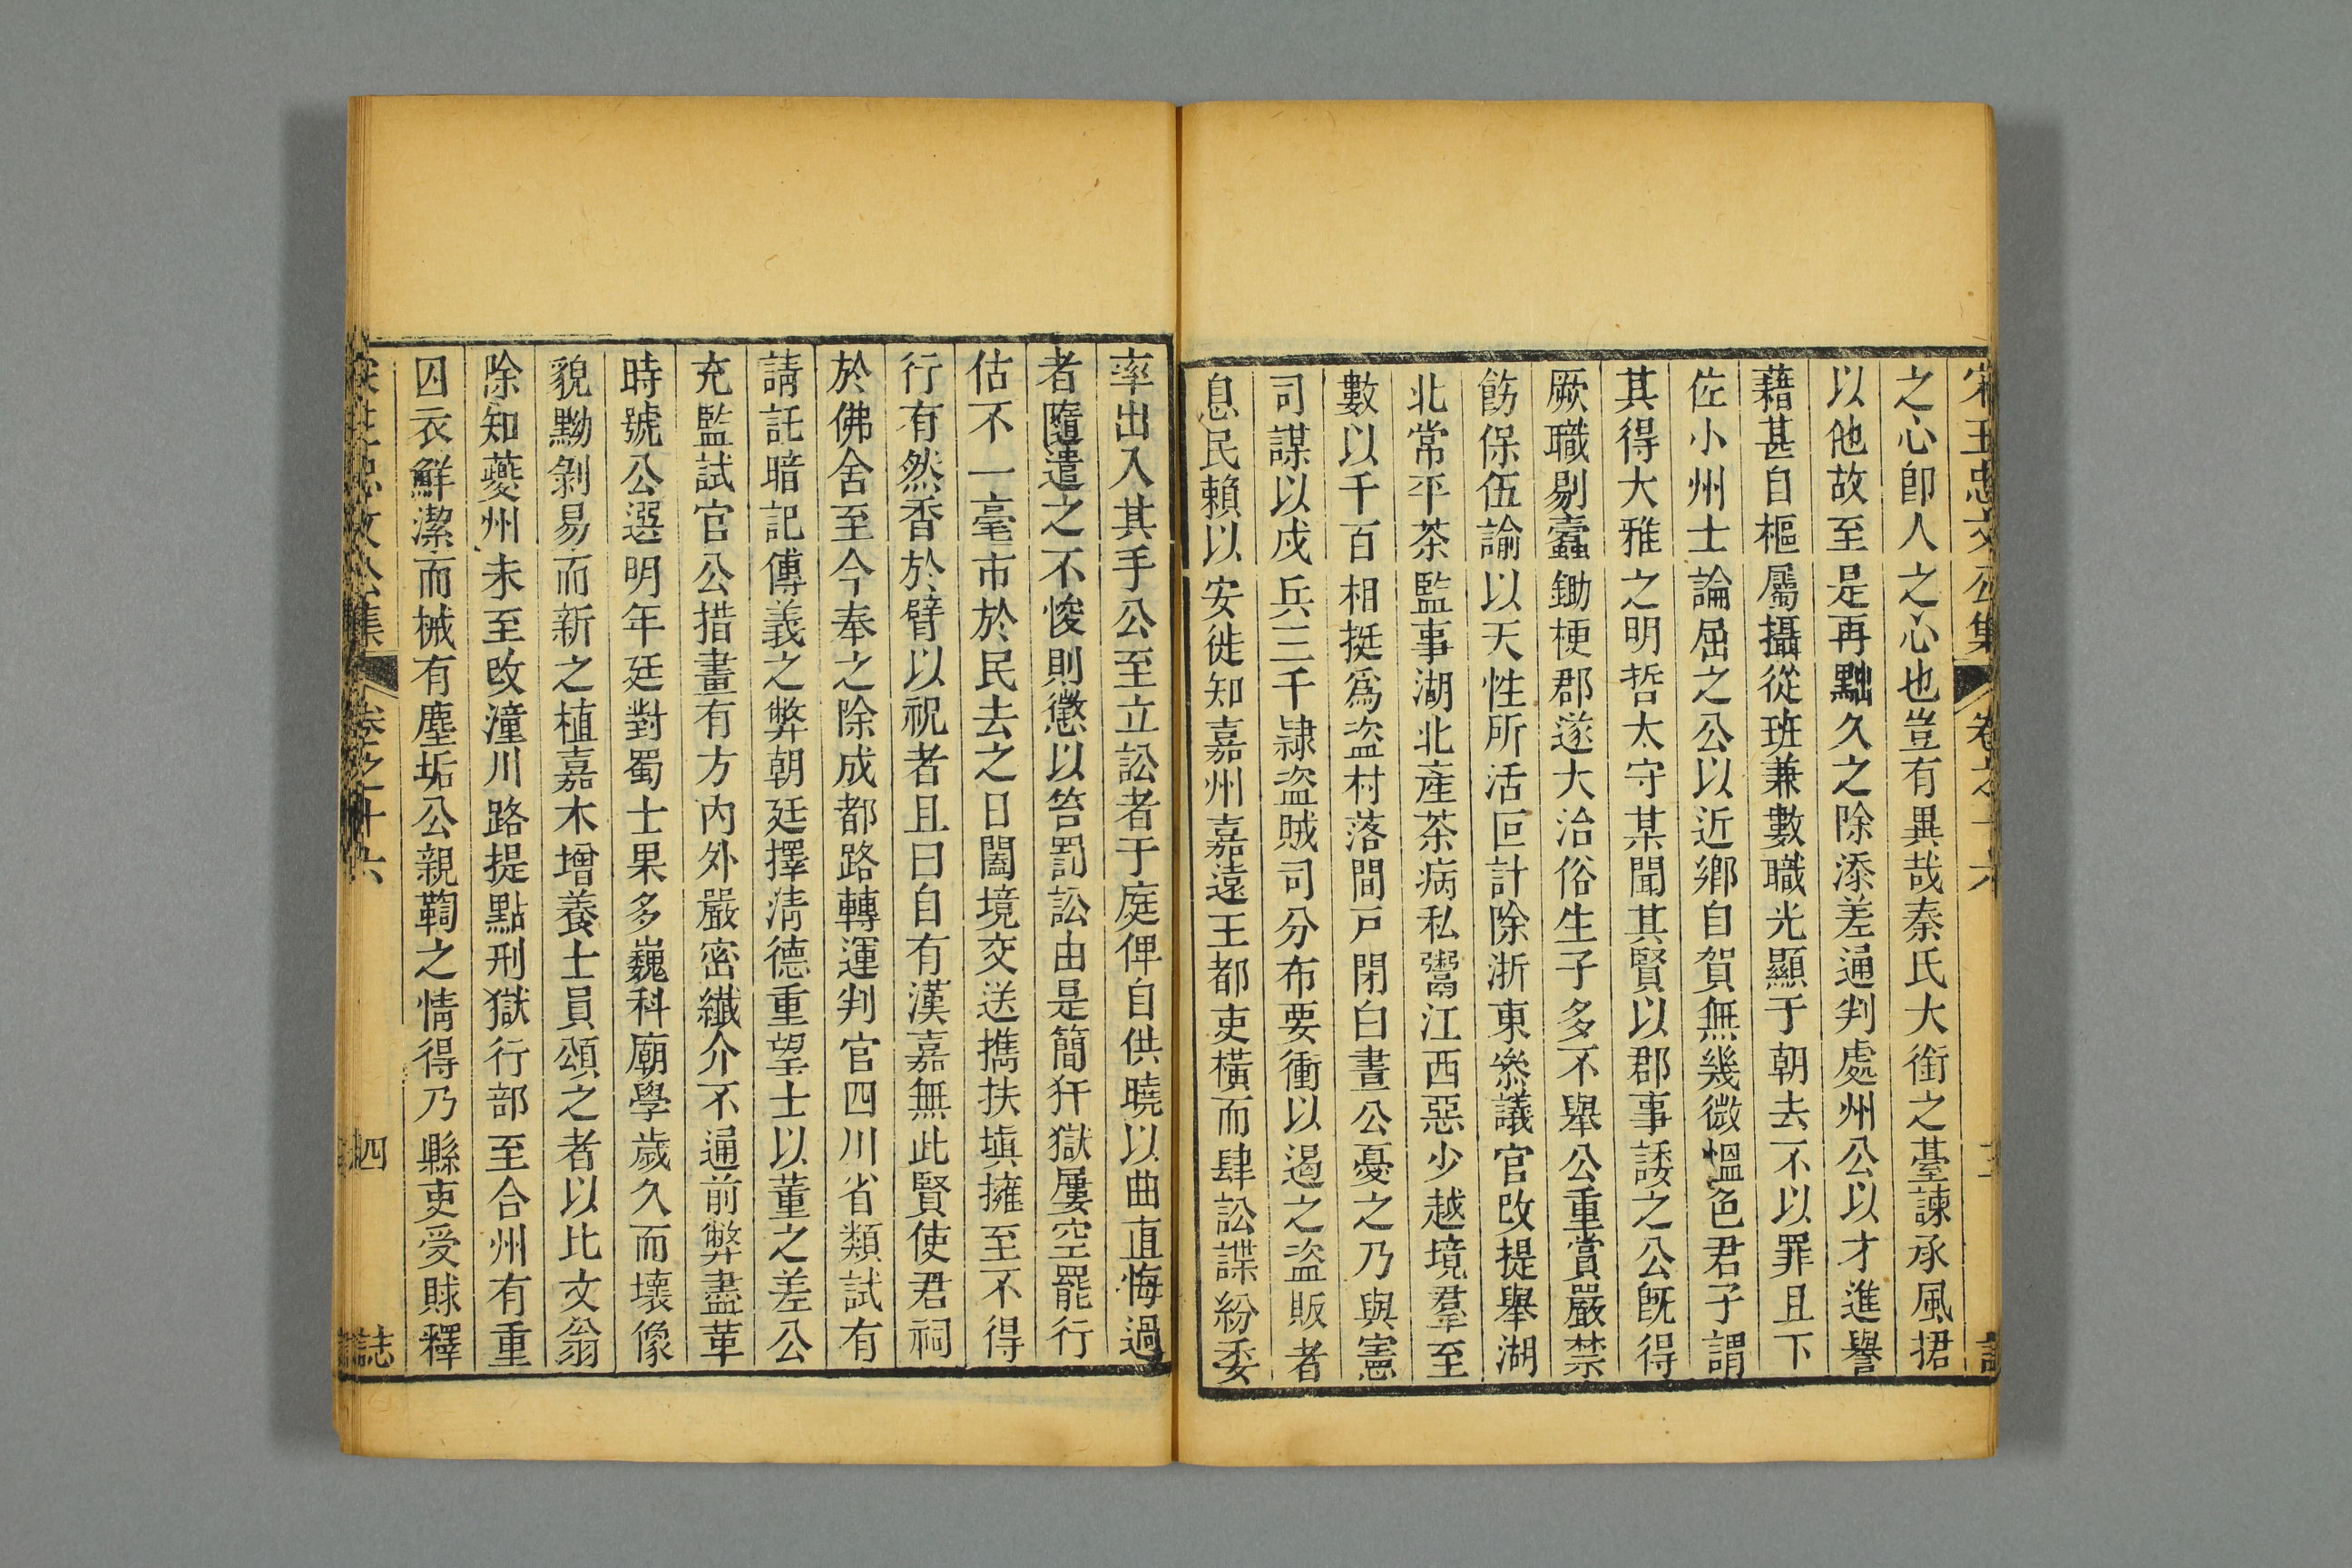 宋王忠文公集 卷之十六 誌
之心卽人之心也豈有異哉秦氏大銜之臺諫承風捃
以他故至是再黜久之除添差通判處州公以才進譽
藉甚自樞屬攝從班兼數職光顯于朝去不以罪且下
佐小州士論屈之公以近鄉自賀無幾微慍色君子謂
其得大雅之明哲太守某聞其賢以郡事諉之公旣得
厥職剔蠹鋤梗郡遂大治俗生子多不舉公重賞嚴禁
飭保伍諭以天性所活叵計除浙東叅議官改提舉湖
北常平茶監事湖北產茶病私鬻江西惡少越境羣至
數以千百相挺爲盜村落間戸閉白晝公憂之乃與憲
司謀以戍兵三千隷盜賊司分布要衝以遏之盜販者
息民賴以安徙知嘉州嘉遠王都吏橫而肆訟諜紛委
率出入其手公至立訟者于庭俾自供曉以曲直悔過
者隨遣之不悛則懲以笞罰訟由是簡犴獄屢空罷行
估不一毫市於民去之日闔境交送攜扶塡擁至不得
行有然香於臂以祝者且曰自有漢嘉無此賢使君祠
於佛舍至今奉之除成都路轉運判官四川省類試有
請託暗記傳義之弊朝廷擇淸德重望士以董之差公
充監試官公措畫有方內外嚴密纖介不通前弊盡革
時號公選明年廷對蜀士果多巍科廟學歲久而壞像
貌黝剝易而新之植嘉木增養士員頌之者以比文翁
除知夔州未至改潼川路提點刑獄行部至合州有重
囚衣鮮潔而械有塵垢公親鞫之情得乃縣吏受賕釋
宋王忠文公集 卷之十六 四 誌